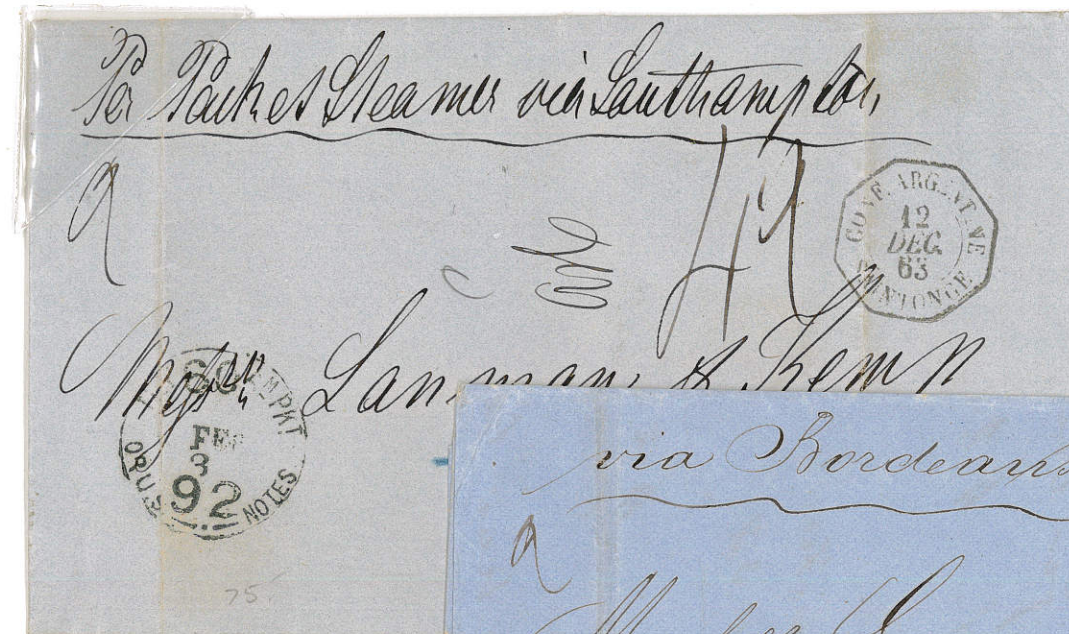 Per Packet Steamer via Southampton
42
CONF. ARGENTINE
12
DEC.
63
Messrs Lanman & Kemp
60
AM PKT
FEB
3
92
OR U.S. NOTES
75
via Bordeaux